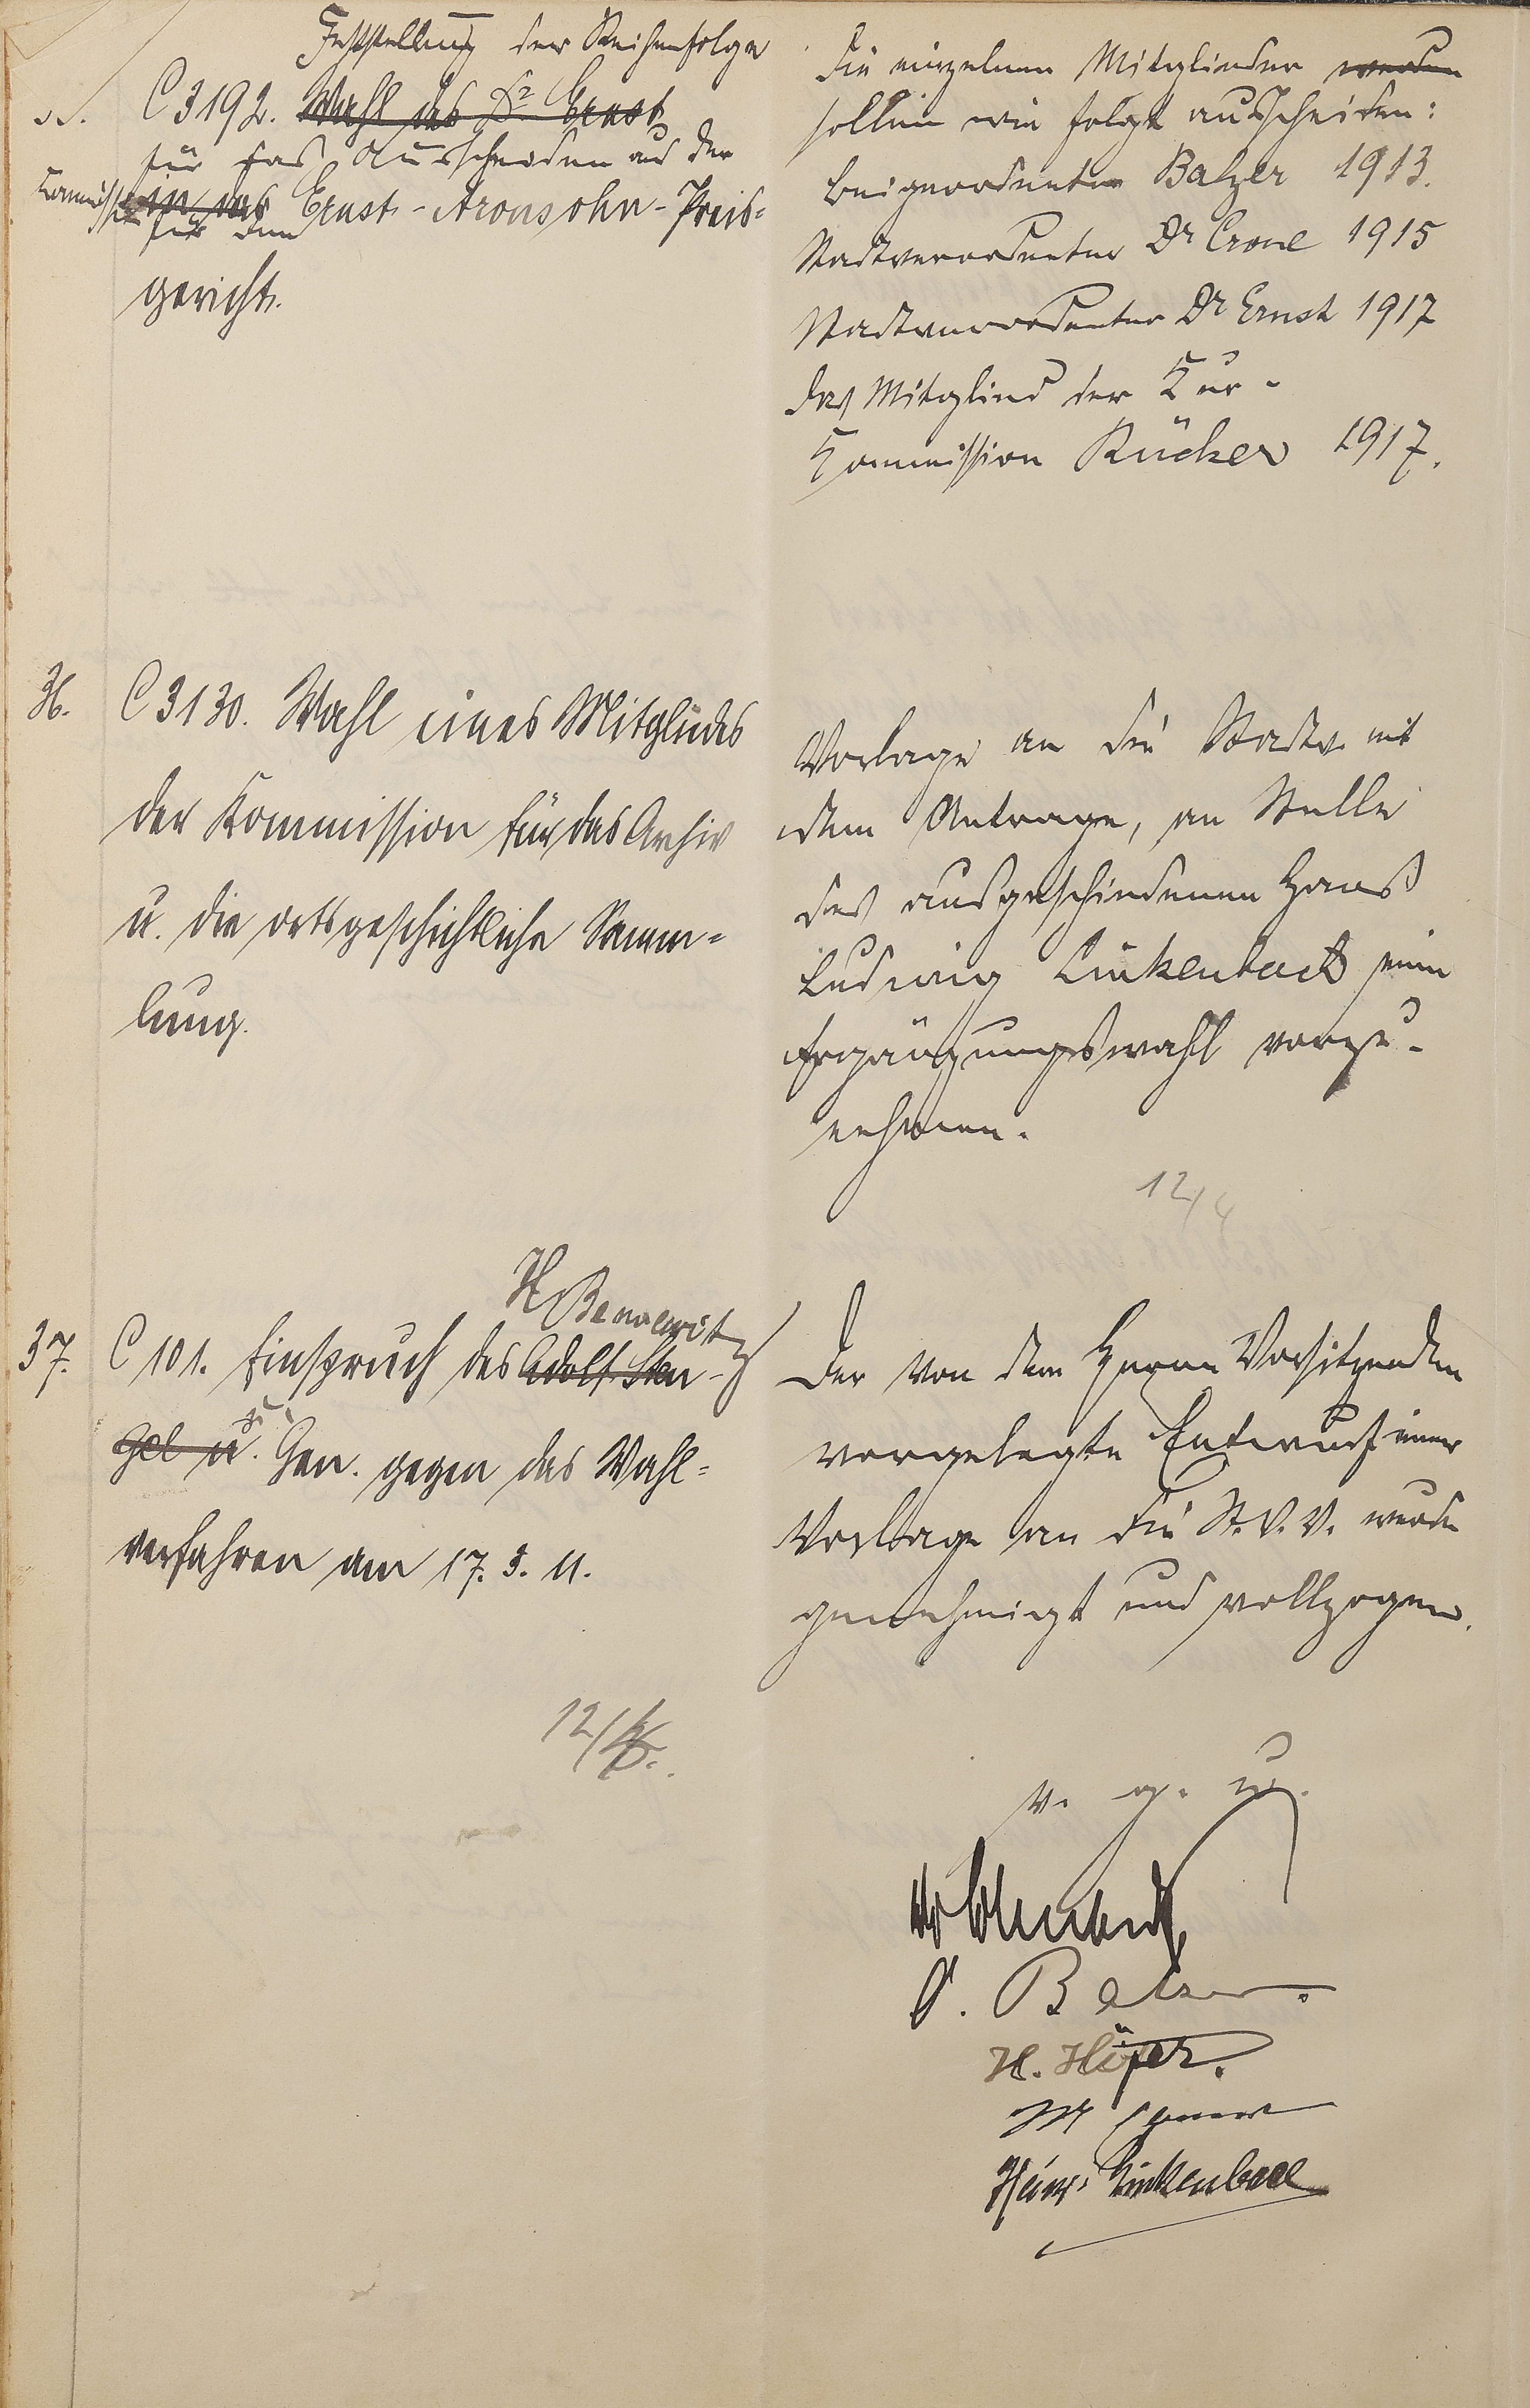 Feststellung der Reihenfolge
C 3192. Wahl des Dr Ernst
für das Ausscheiden aus der
Kommission in das Ernst-Aronsohn-Preis=
für den
gericht.
Die einzelnen Mitglieder werden
sollen wie folgt ausscheiden:
Beigeordneter Balzer 1913.
Stadtverordneter Dr Crone 1915
Stadtverordneter Dr Ernst 1917
das Mitglied der Kur-
Kommission Rücker 1917.
36.
C 3130. Wahl eines Mitgliedes
der Kommission für das Archiv
u. die ortsgeschichtliche Samm=
lung.
Vorlage an die Stadtv. mit
dem Antrage, an Stelle
des ausgeschiedenen Hans
Ludwig Linkenbach eine
Ergänzungswahl vorzu-
nehmen.
12/4
37.
H Bennewitz
C 101. Einspruch des Adolf Sten-
gel u. Gen. gegen das Wahl=
verfahren am 17. 3. 11.
Der von dem Herrn Vorsitzenden
vorgelegte Entwurf einer
Vorlage an die St. V. V. wurde
genehmigt und vollzogen.
12/4.
v. g. u.
O. Balzer.
H. Höfer.
Heinr. Linkenbach